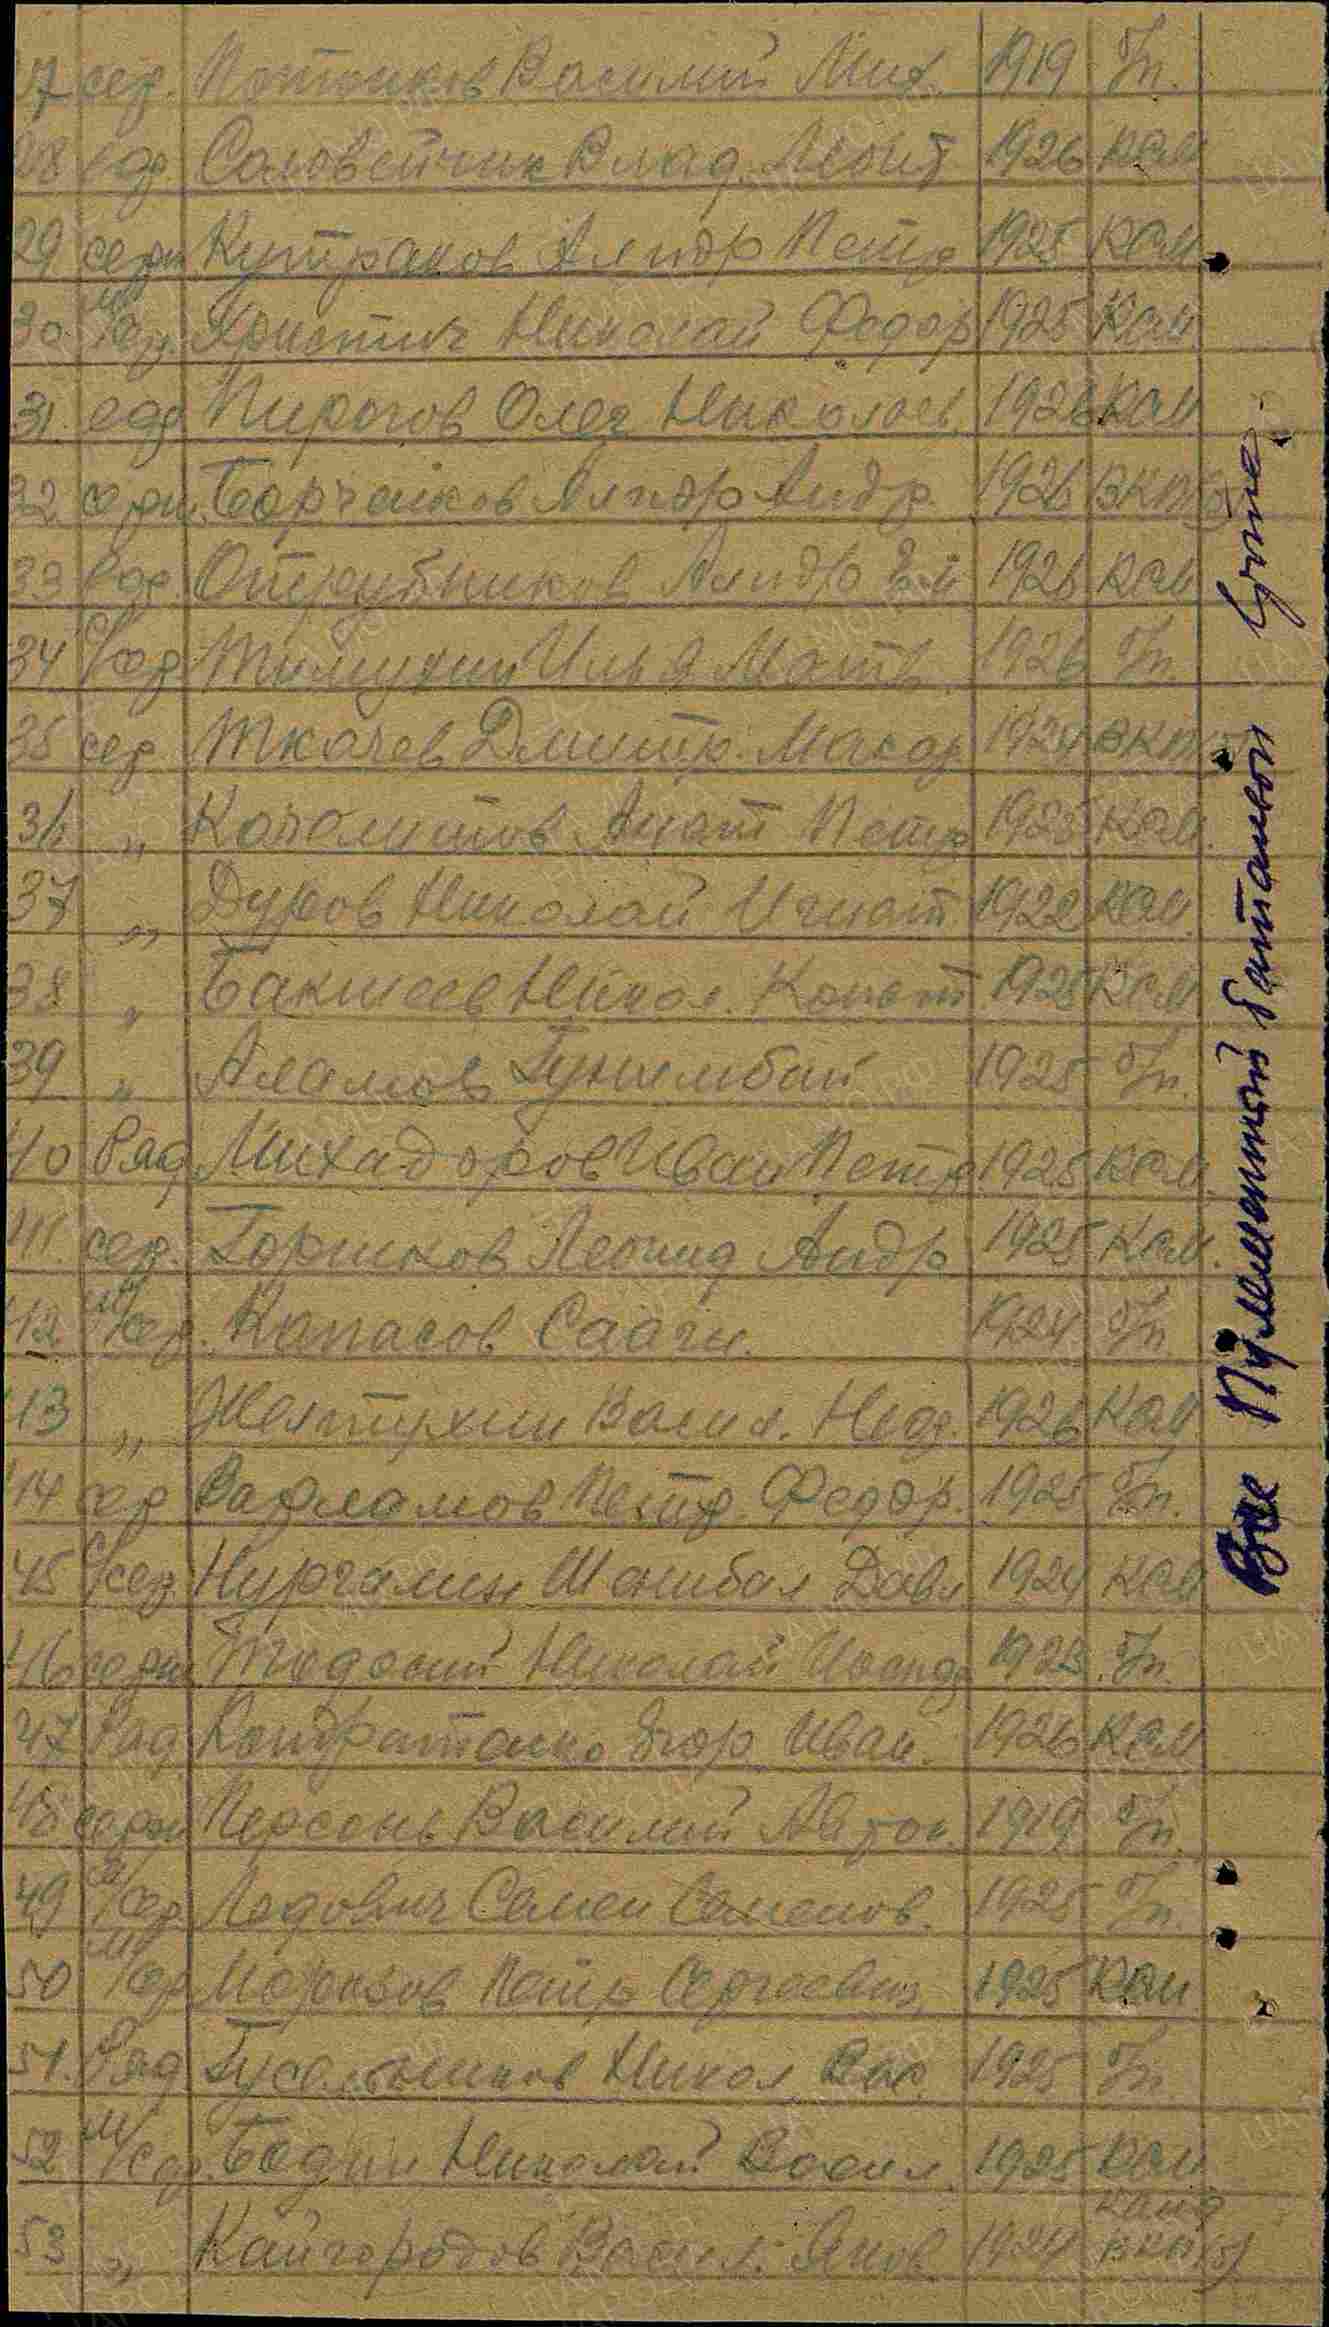 27 сер. Потопков Василий Мих. 1919 б/п.
28 еф. Соловейчик Влад. Леонт 1926 Ком
29 серж Кутраков Ал-ндр Петр 1925 Ком
30 м/сер. Христич Николай Федор 1925 Ком
31. ефр Пирогов Олег Николаев. 1926 Ком
32 серж. Борчейков Ал-ндр Андр. 1926 ВКПб
33 Ряд. Отрубников Ал-ндр 1926 Ком
34 С/сер Тимухин Илья Матв. 1926 б/п.
35 сер. Ткачев Дмитр. Макар 1924 ВКП
36 „ Коголистов Анат Петр 1925 Ком.
37 „ Дуров Николай Игнат. 1922 Ком.
38 „ Бакшеев Никол. Конст 1925 Ком
39 „ Аламов Гунимбай 1925 б/п.
40 Ряд Михадоров Иван Петр. 1925 Ком.
41. сер. Горшков Леонид Андр 1925 Ком.
42 м/сер. Капасов Сааги. 1924 б/п.
43 „ Желтухин Васил. Фед. 1926 Ком
44 сер Варламов Петр. Федор. 1925 б/п.
45 С/сер. Нургалин Шанибал Давл 1924 Ком
46 серж Тиодосий Николай 1923. б/п.
47 Ряд Кондратенко Егор Иван. 1926 Ком
48 серж Персонь Василий 1919 б/п.
49 С/сер Ледович Семен Семенов. 1925 б/п.
50 М/сер Морозов Петр Сергеевич 1925 Ком
51. Ряд Гусельников Никол Вас. 1925 б/п.
52 М/сер. Бодин Николай Васил 1925 Ком
53 „ Кайгородов Васил. Яков. 1924 канд ВКП(б)
Все Пулеметный батальон